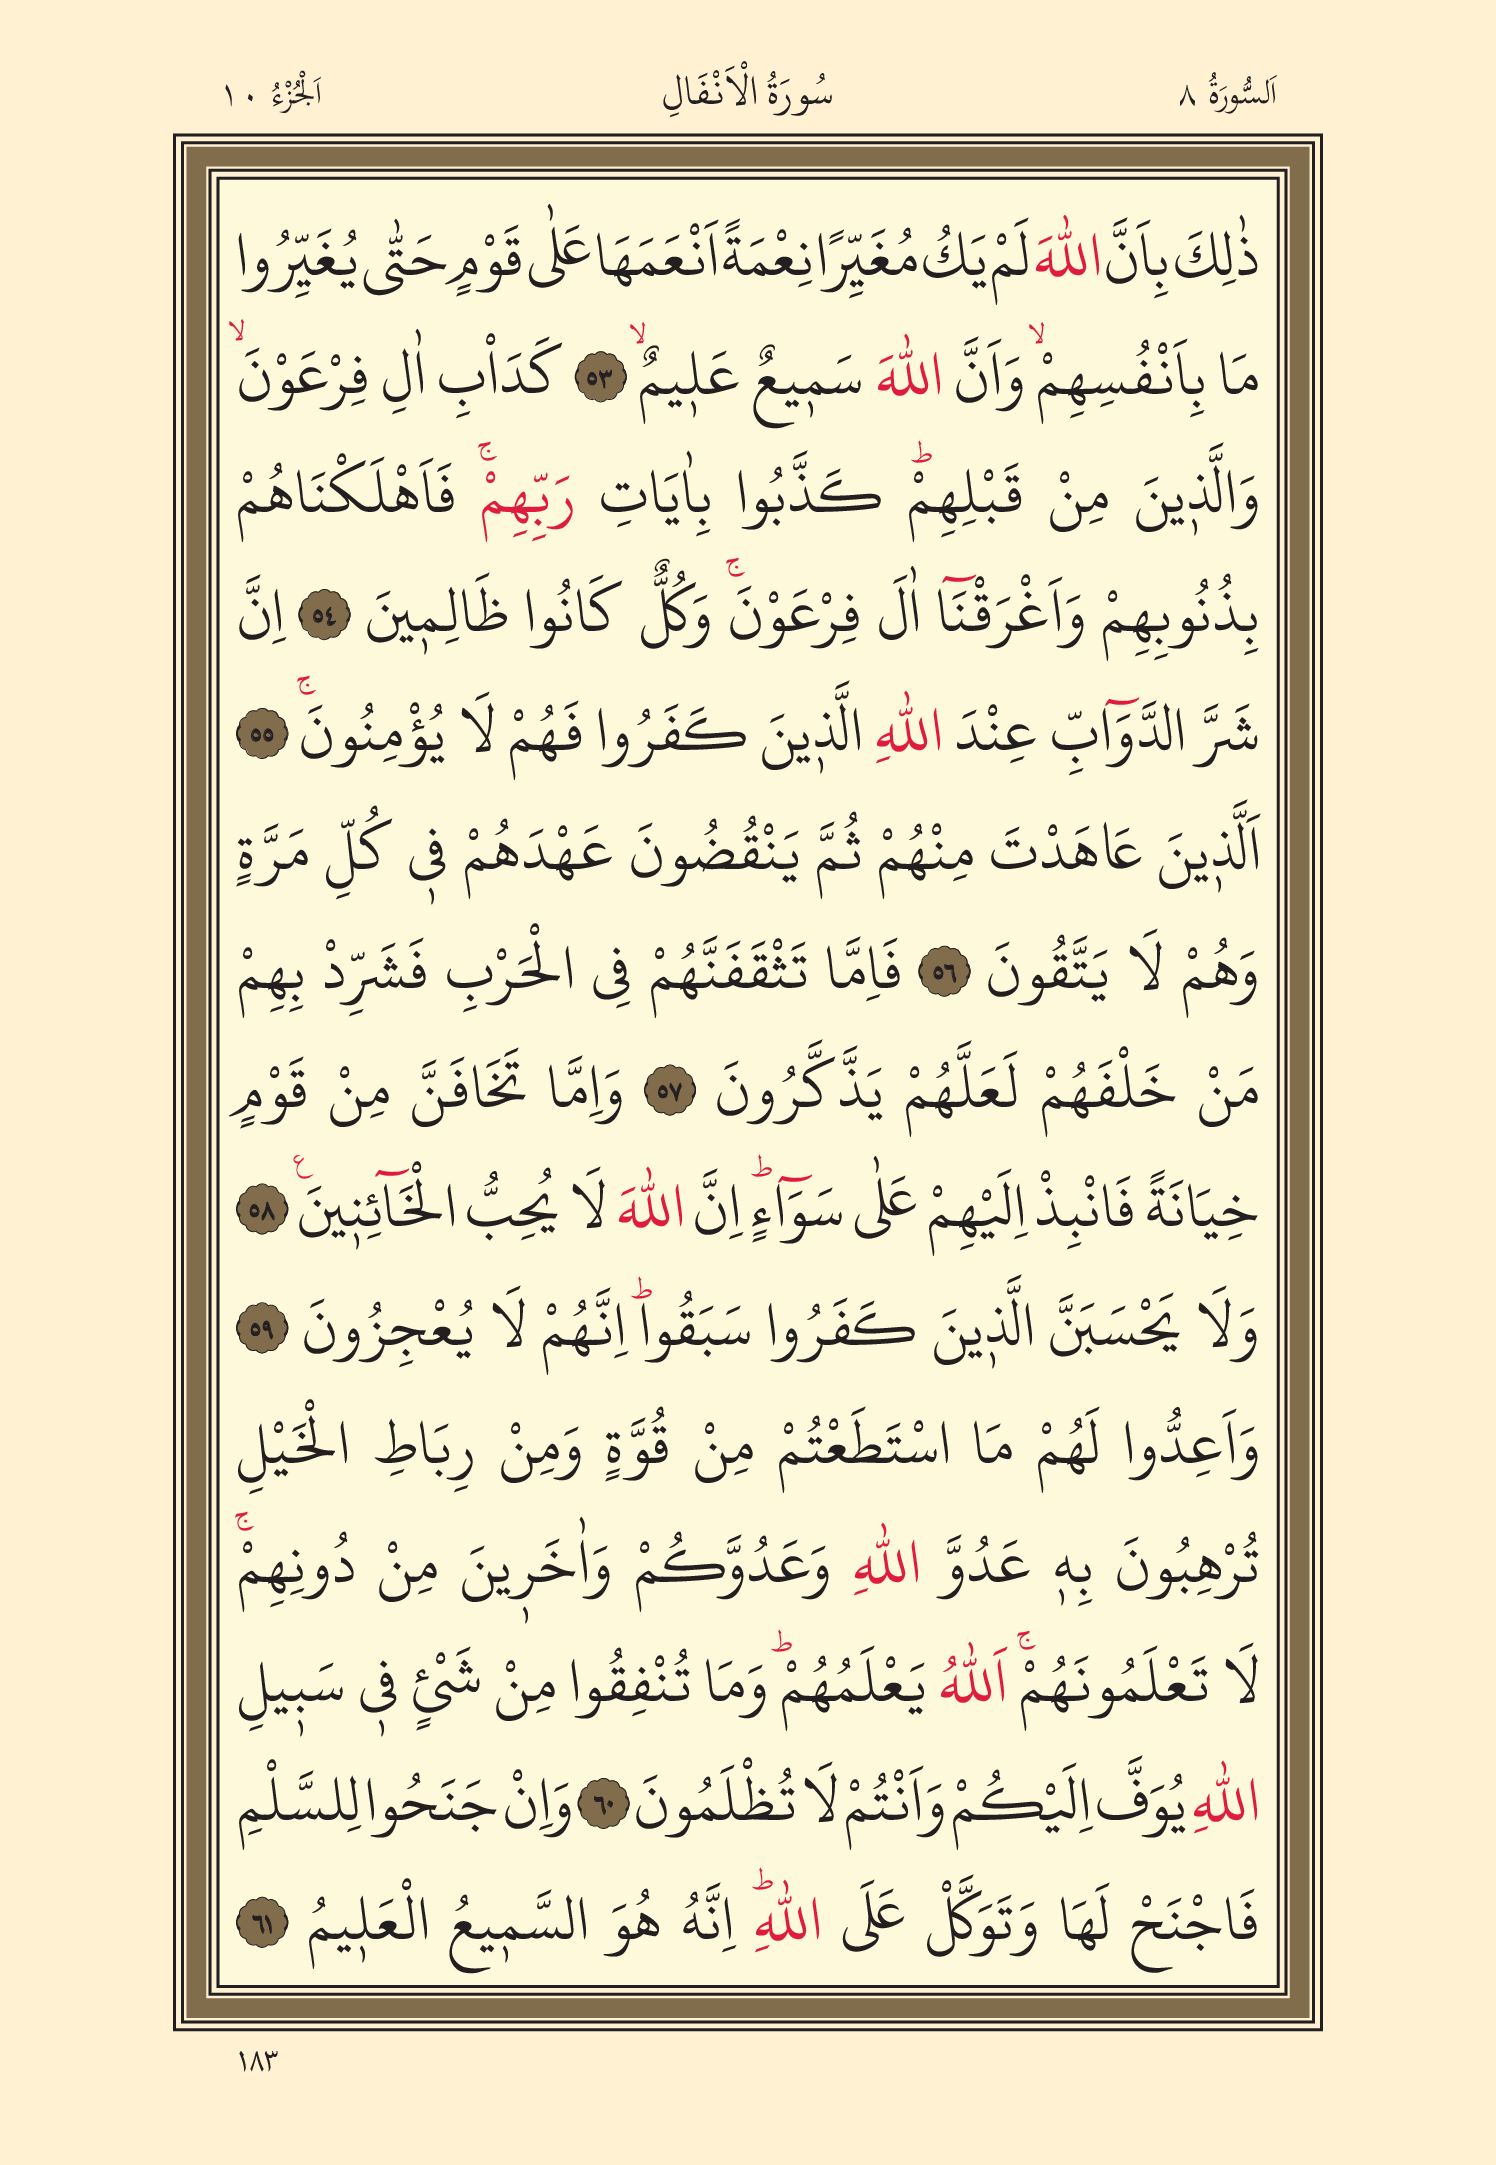 اَلسُّورَةُ ٨ سُورَةُ الْاَنْفَالِ اَلْجُزْءُ ١٠
ذٰلِكَ بِاَنَّ اللّٰهَ لَمْ يَكُ مُغَيِّرًا نِعْمَةً اَنْعَمَهَا عَلٰى قَوْمٍ حَتّٰى يُغَيِّرُوا
مَا بِاَنْفُسِهِمْۙ وَاَنَّ اللّٰهَ سَم۪يعٌ عَل۪يمٌۙ ٥٣ كَدَاْبِ اٰلِ فِرْعَوْنَۙ
وَالَّذ۪ينَ مِنْ قَبْلِهِمْۜ كَذَّبُوا بِاٰيَاتِ رَبِّهِمْۚ فَاَهْلَكْنَاهُمْ
بِذُنُوبِهِمْ وَاَغْرَقْنَٓا اٰلَ فِرْعَوْنَۚ وَكُلٌّ كَانُوا ظَالِم۪ينَ ٥٤ اِنَّ
شَرَّ الدَّوَٓابِّ عِنْدَ اللّٰهِ الَّذ۪ينَ كَفَرُوا فَهُمْ لَا يُؤْمِنُونَۚ ٥٥
اَلَّذ۪ينَ عَاهَدْتَ مِنْهُمْ ثُمَّ يَنْقُضُونَ عَهْدَهُمْ ف۪ي كُلِّ مَرَّةٍ
وَهُمْ لَا يَتَّقُونَ ٥٦ فَاِمَّا تَثْقَفَنَّهُمْ فِي الْحَرْبِ فَشَرِّدْ بِهِمْ
مَنْ خَلْفَهُمْ لَعَلَّهُمْ يَذَّكَّرُونَ ٥٧ وَاِمَّا تَخَافَنَّ مِنْ قَوْمٍ
خِيَانَةً فَانْبِذْ اِلَيْهِمْ عَلٰى سَوَٓاءٍۜ اِنَّ اللّٰهَ لَا يُحِبُّ الْخَٓائِن۪ينَ۟ ٥٨
وَلَا يَحْسَبَنَّ الَّذ۪ينَ كَفَرُوا سَبَقُواۜ اِنَّهُمْ لَا يُعْجِزُونَ ٥٩
وَاَعِدُّوا لَهُمْ مَا اسْتَطَعْتُمْ مِنْ قُوَّةٍ وَمِنْ رِبَاطِ الْخَيْلِ
تُرْهِبُونَ بِه۪ عَدُوَّ اللّٰهِ وَعَدُوَّكُمْ وَاٰخَر۪ينَ مِنْ دُونِهِمْۚ
لَا تَعْلَمُونَهُمْۚ اَللّٰهُ يَعْلَمُهُمْۜ وَمَا تُنْفِقُوا مِنْ شَيْءٍ ف۪ي سَب۪يلِ
اللّٰهِ يُوَفَّ اِلَيْكُمْ وَاَنْتُمْ لَا تُظْلَمُونَ ٦٠ وَاِنْ جَنَحُوا لِلسَّلْمِ
فَاجْنَحْ لَهَا وَتَوَكَّلْ عَلَى اللّٰهِۜ اِنَّهُ هُوَ السَّم۪يعُ الْعَل۪يمُ ٦١
١٨٣